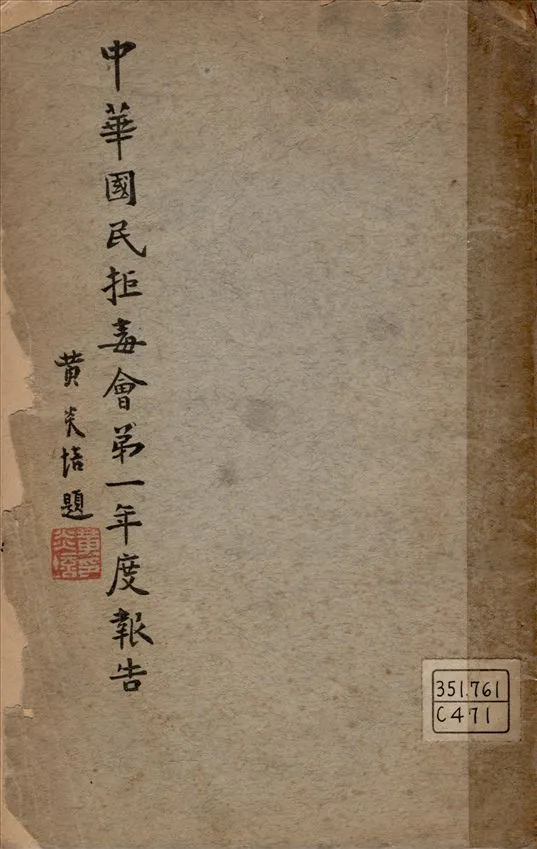 中華國民拒毒會第一年度報告
黄炎培題
351.761
C471